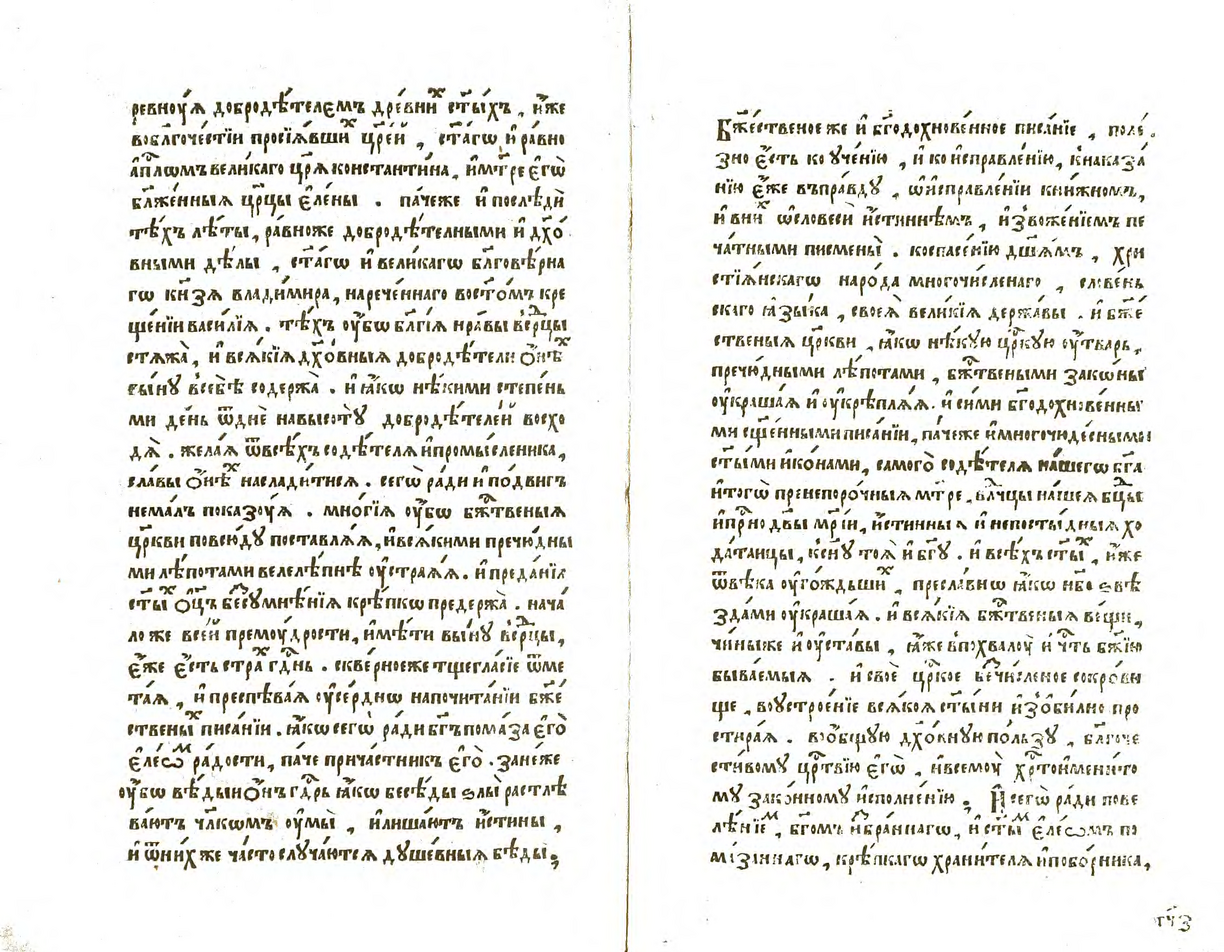 ревнꙋ́ѧ добродѣ́телемъ дре́вниⷯ ст҃ы́хъ , и҆́же
во бл҃гоче́стїи просїѧ́вшиⷯ цр҃е́й , ст҃а́гѡ и҆ ра́вно
а҆пⷭ҇лѡмъ вели́каго цр҃ѧ̀ константи́на , и҆ мт҃ре є҆гѡ̀
бл҃же́нныѧ цр҃цы є҆ле́ны . па́че же и҆ послѣдѝ
тѣ́хъ лѣ́ты , ра́вно же добродѣ́телными и҆ дх҃о́
вными дѣ́лы , ст҃а́гѡ и҆ вели́кагѡ бл҃говѣ́рна
гѡ кнѧ́зѧ влади́мира , нарече́ннаго во ст҃о́мъ кре
ще́нїи васи́лїѧ . тѣ́хъ ᲂу҆́бѡ бл҃гі́ѧ нра́вы в̾ се́рⷣцы
стѧжа̀ , и҆ всѧ́кїѧ дх҃о́вныѧ добродѣ́тели ѻ҆́нѣⷯ
вы́нꙋ в̾ себѣ̀ содержа̀ . и҆ ꙗ҆́кѡ нѣ́кими степе́нь
ми де́нь ѿ днѐ на высотꙋ̀ добродѣ́телей восхо
дѧ̀ . жела́ѧ ѿ всѣ́хъ содѣ́телѧ и҆ промы́сленика ,
сла́вы ѻ҆́нѣⷯ наслади́тисѧ . сегѡ̀ ра́ди и҆ по́двигъ
нема́лъ показꙋ́ѧ . мнѡ́гїѧ ᲂу҆́бѡ бжⷭ҇твеныѧ
цр҃кви повсю́дꙋ поставлѧ́ѧ , и҆ всѧ́кими пречю́дны
ми лѣ́потами велелѣ́пнѣ ᲂу҆страѧ́ѧ . и҆ преда́нїѧ
ст҃ы́ⷯ ѻ҆ц҃ъ без̾ сꙋмнѣ́нїѧ крѣ́пкѡ предержа̀ . нача́
ло же все́й премꙋ́дрости , и҆мѣ́ти вы́нꙋ в̾ се́рⷣцы ,
є҆́же є҆́сть стра́ⷯ гдⷭ҇нь . скве́рное же тщегла́сїе ѿме
та́ѧ , и҆ преспѣва́ѧ ᲂу҆се́рднѡ на почита́нїи бж҃е́
ствены́ⷯ писа́нїи . ꙗ҆́кѡ сегѡ̀ ра́ди бг҃ъ пома́за є҆го̀
є҆ле́ѡⷨ ра́дости , па́че прича́стникъ є҆го̀ . зане́же
ᲂу҆́бѡ вѣ́дыи ѻ҆́нъ гдⷭ҇рь ꙗ҆́кѡ бесѣ́ды ѕлы̀ растлѣ
ва́ютъ чл҃кѡмъ ᲂу҆мы̀ , и҆ лиша́ютъ и҆́стины ,
и҆ ѿ ни́х же ча́сто слꙋча́ютсѧ дꙋше́вныѧ бѣ́ды ;
Бж҃е́ственое же и҆ бг҃одохнове́нное писа́нїе , поле́
зно є҆́сть ко ᲂуче́нїю , и҆ ко и҆справле́нїю , к̾ наказа́
нїю є҆́же въ пра́вдꙋ , ѡ҆ и҆справле́нїи кни́жномъ ,
и҆ в ни́ⷯ ѡ҆ словесѝ и҆́стиннѣмъ , и҆зво́женїемъ пе
ча́тными писмены̀ . ко спасе́нїю дш҃а́мъ , хри
стїѧ́нскагѡ наро́да многочи́сленаго , слове́нь
скаго ꙗ҆зы́ка , своеѧ̀ вели́кїѧ держа́вы . и҆ бж҃е́
ственыѧ цр҃кви , ꙗ҆́кѡ нѣ́кꙋю цр҃кꙋю ᲂу҆́тварь ,
пречю́дными лѣ́потами , бжⷭ҇твеными зако́ны
ᲂу҆краша́ѧ и҆ ᲂу҆крѣплѧ́ѧ . и҆ си́ми бг҃одохнове́нны
ми сщ҃е́нными писа́нїи , па́че же и҆ многочюде́сными
ст҃ы́ми и҆ко́нами , самого̀ содѣ́телѧ на́шегѡ бг҃а
и҆ тогѡ̀ пренепоро́чныѧ мт҃ре , влⷣчцы на́шеѧ бцⷣы
и҆ прⷭ҇но дв҃ы мр҃і́и , и҆́стинныѧ и҆ непосты́дныѧ хо
да́таицы , к̾ сн҃ꙋ тоѧ̀ и҆ бг҃ꙋ . и҆ всѣ́хъ ст҃ы́ⷯ , и҆́же
ѿ вѣ́ка ᲂу҆го́ждьшиⷯ , пресла́внѡ ꙗ҆́кѡ нб҃о ѕвѣ
зда́ми ᲂу҆краша́ѧ . и҆ всѧ́кїѧ бжⷭ҇твеныѧ ве́щи ,
чи́ны же и҆ ᲂу҆ста́вы , ꙗ҆́же в̾ похвалꙋ̀ и҆ чⷭ҇ть бж҃їю
быва́емыѧ . и҆ своѐ цр҃кое бесчи́сленое сокро́ви
ще , во ᲂустрое́нїе всѧ́коѧ ст҃ы́ни и҆з̾оби́лно про
стира́ѧ . в̾ о҆́бщꙋю дх҃о́внꙋю по́льзꙋ , бл҃гоче
сти́вомꙋ црⷭ҇твїю є҆гѡ̀ , и҆ всемꙋ̀ хрⷭ҇тоимени́то
мꙋ зако́нномꙋ и҆сполне́нїю ; И҆ сегѡ̀ ра́ди пове
лѣ́нїеⷨ , бг҃омъ и҆збра́ннагѡ , и҆ ст҃ы́ⷨ є҆ле́ѡмъ по
ма́заннагѡ , крѣ́пкагѡ храни́телѧ и҆ побо́рника ,